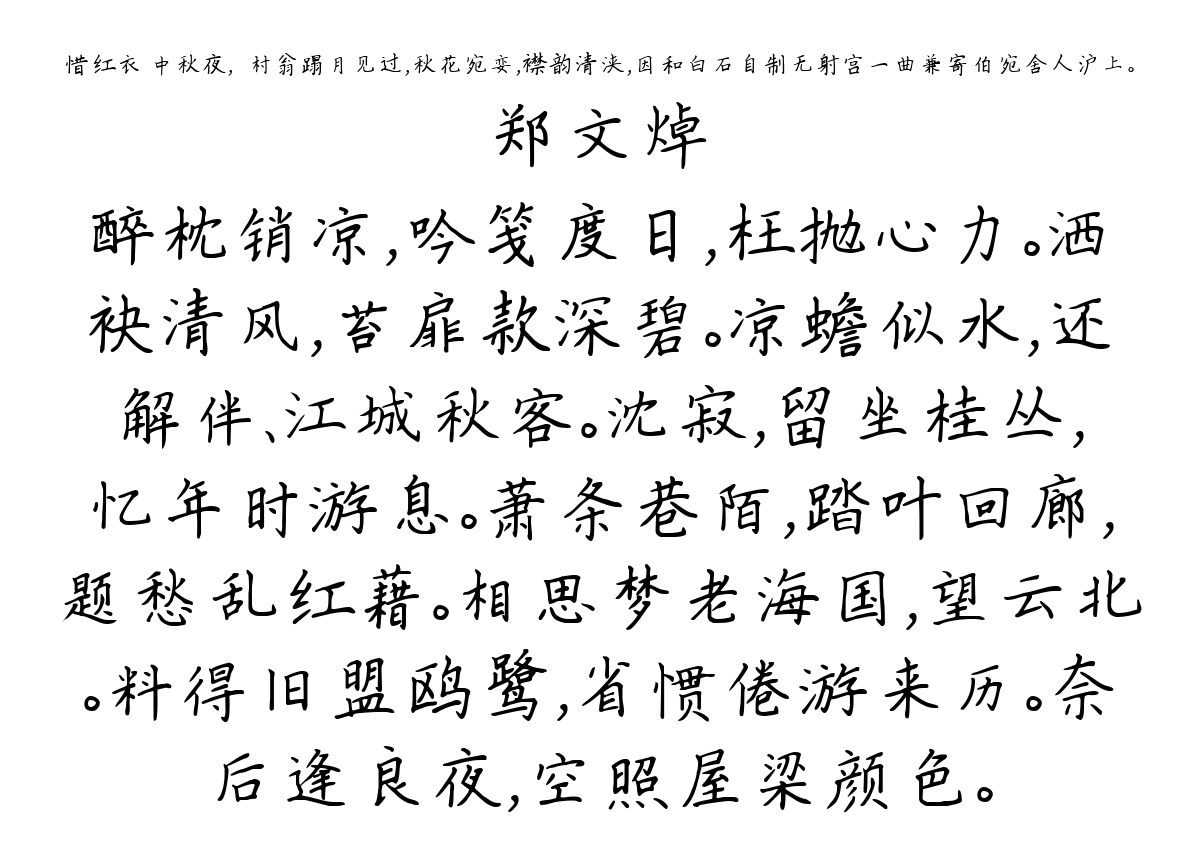 惜红衣 中秋夜, 村翁蹋月见过,秋花宛娈,襟韵清浃,因和白石自制无射宫一曲兼寄伯宛舍人沪上。
郑文焯
醉枕销凉,吟笺度日,枉抛心力。洒
袂清风,苔扉款深碧。凉蟾似水,还
解伴、江城秋客。沈寂,留坐桂丛,
忆年时游息。萧条巷陌,踏叶回廊,
题愁乱红藉。相思梦老海国,望云北
。料得旧盟鸥鹭,省惯倦游来历。奈
后逢良夜,空照屋梁颜色。